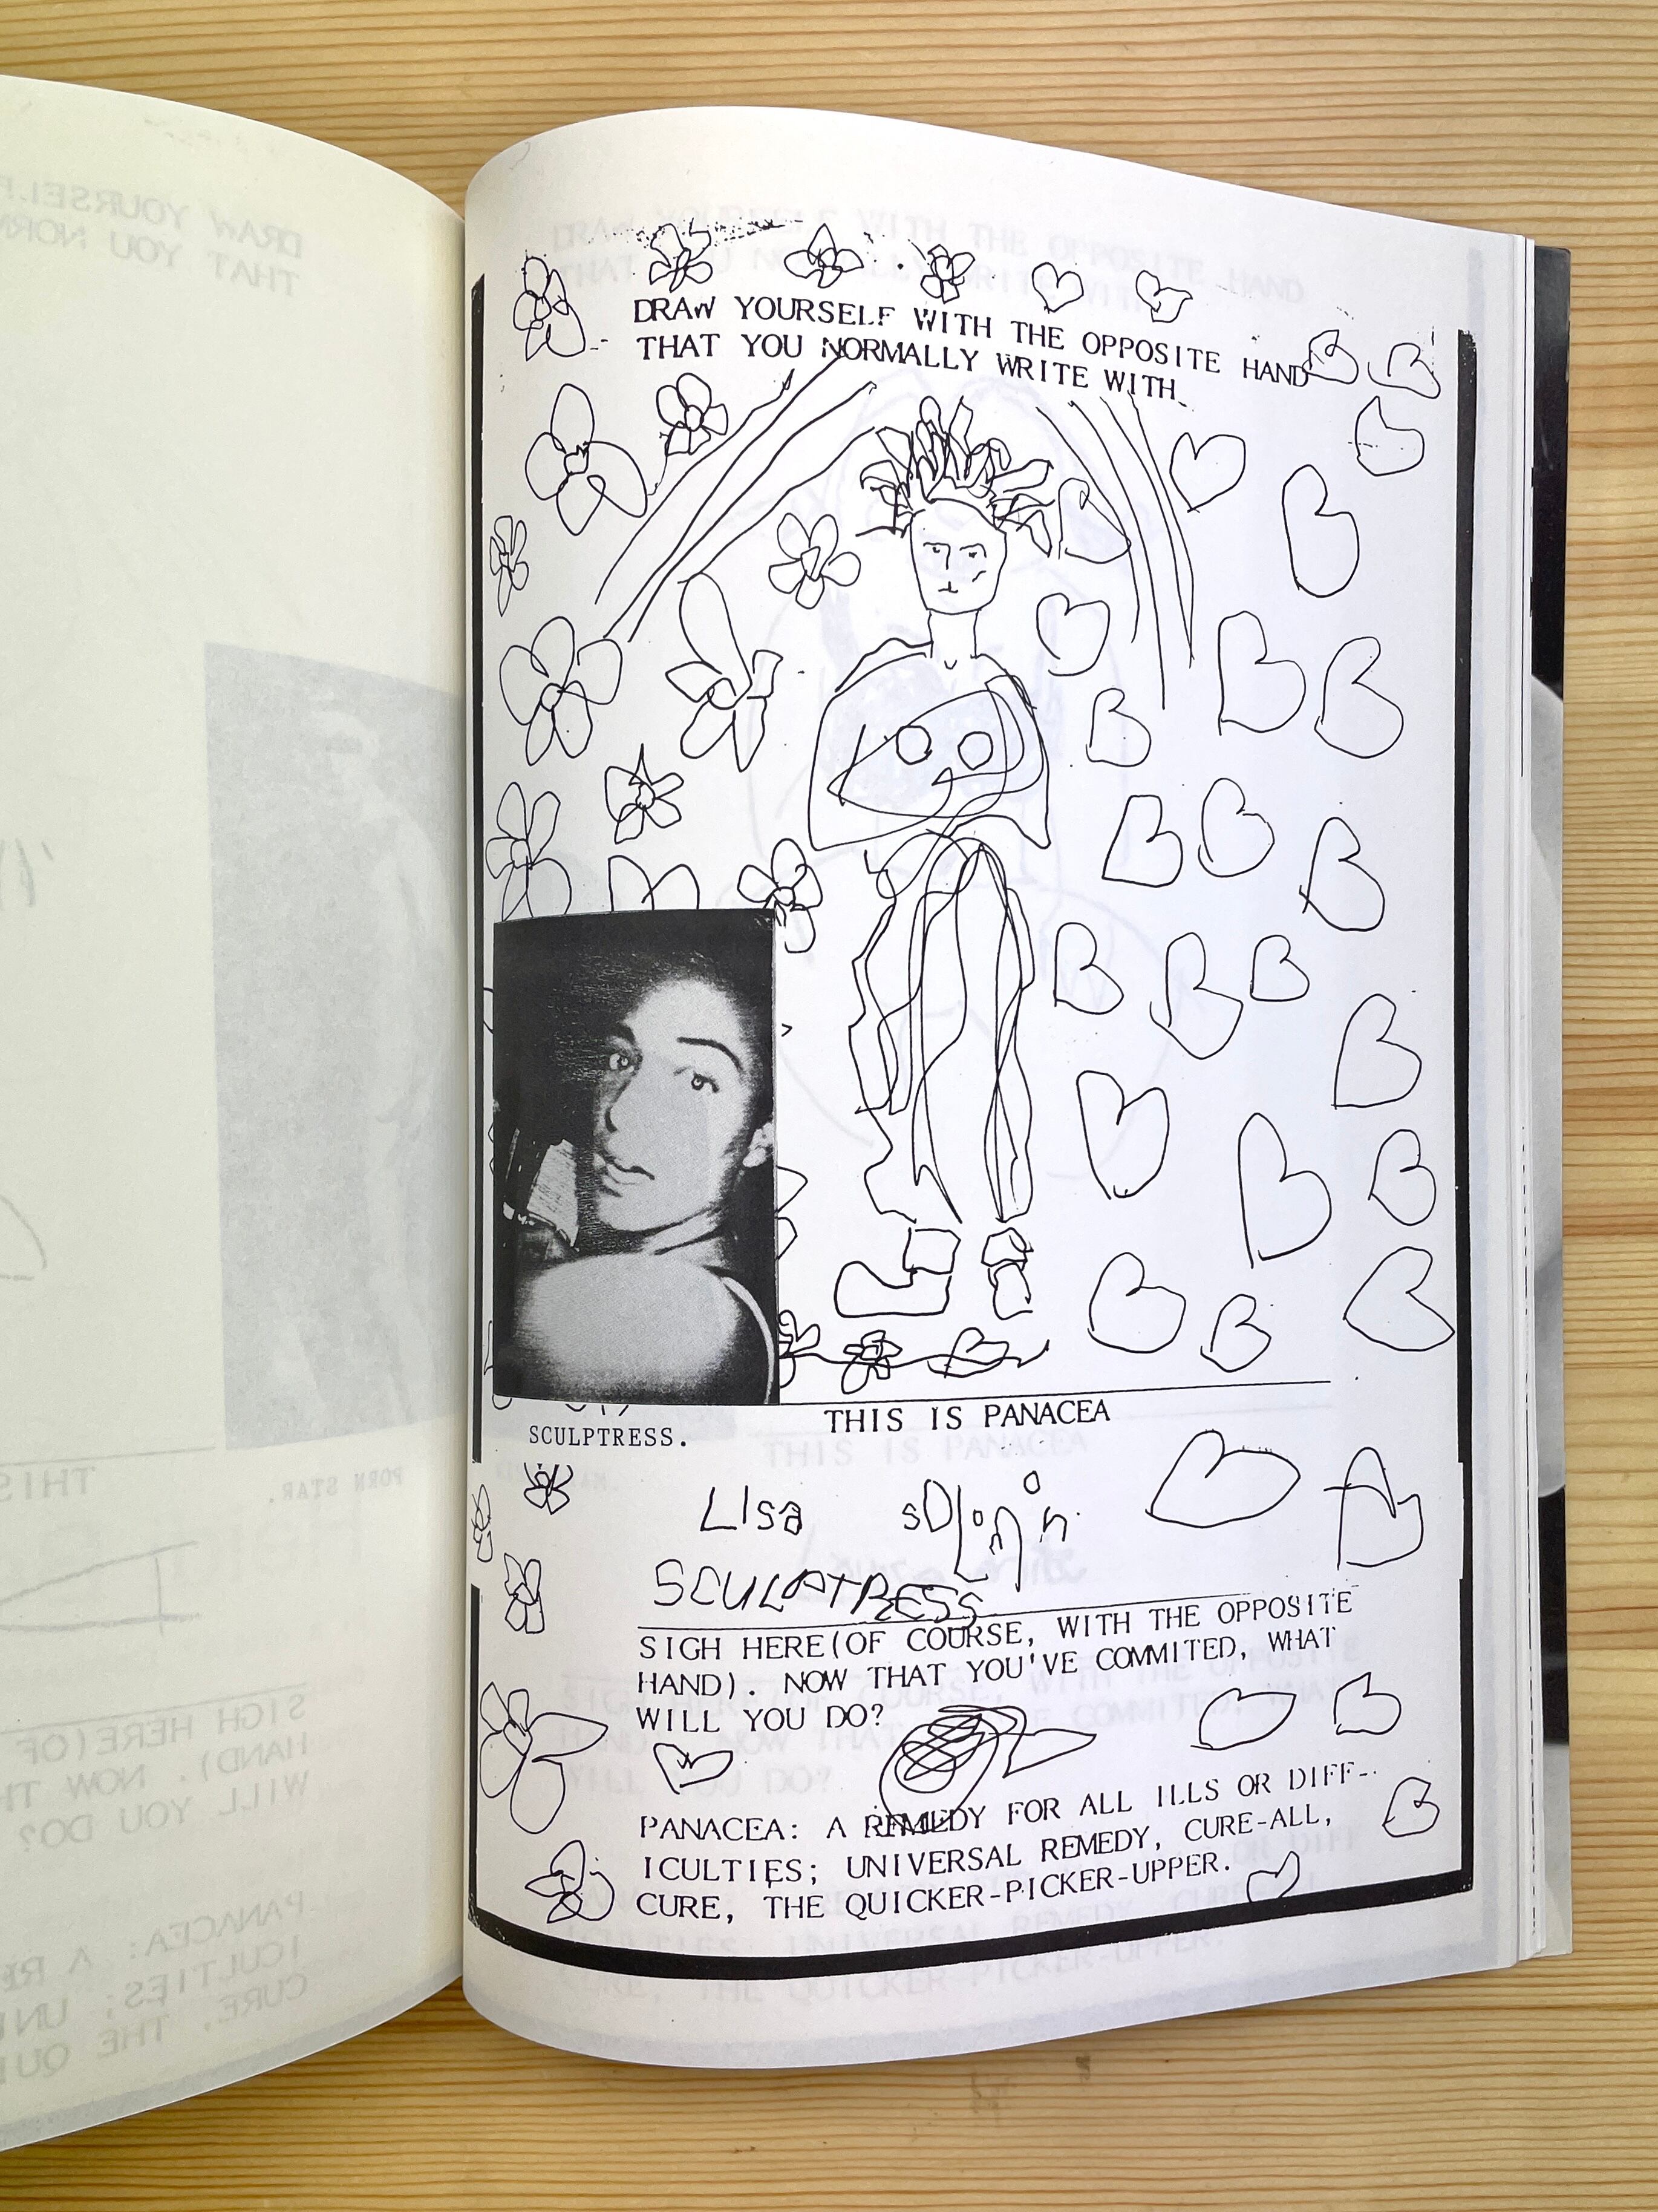 DRAW YOURSELF WITH THE OPPOSITE HAND
THAT YOU NORMALLY WRITE WITH
THIS IS PANACEA
SCULPTRESS.
LIsa
SCULPTRESS
SIGH HERE(OF COURSE, WITH THE OPPOSITE
HAND). NOW THAT YOU'VE COMMITED, WHAT
WILL YOU DO?
PANACEA: A REMEDY FOR ALL ILLS OR DIFF-
ICULTIES; UNIVERSAL REMEDY, CURE-ALL,
CURE, THE QUICKER-PICKER-UPPER.